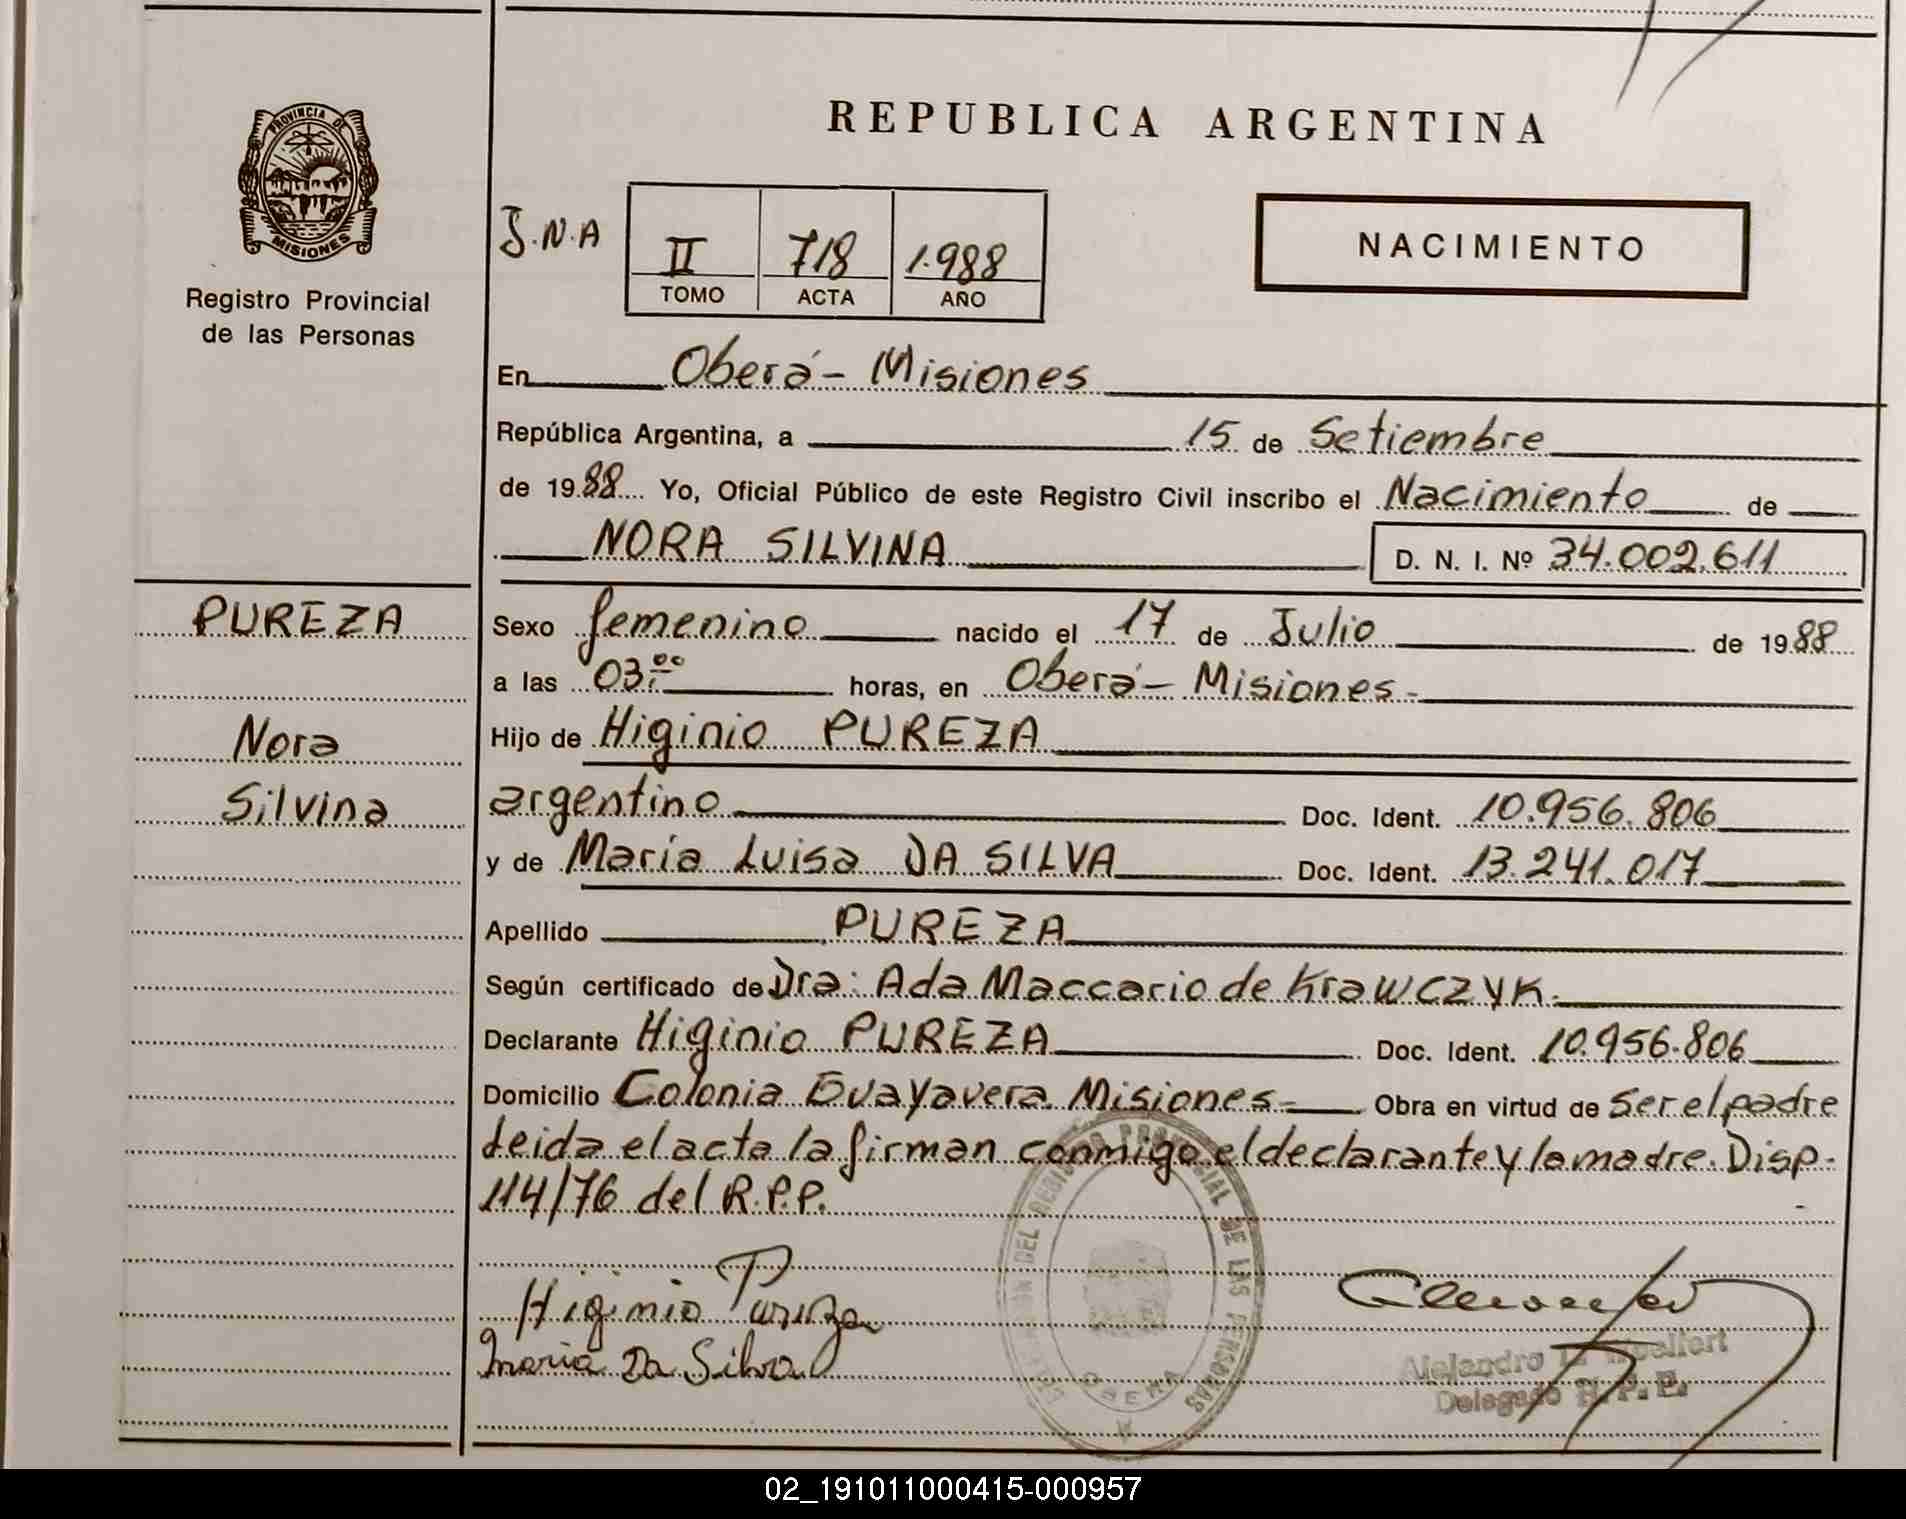 REPUBLICA ARGENTINA
PROVINCIA DE
MISIONES
Registro Provincial
de las Personas
J.N.A
II 718 1.988
TOMO ACTA AÑO
NACIMIENTO
En Oberá - Misiones
República Argentina, a 15 de Setiembre
de 19 88 Yo, Oficial Público de este Registro Civil inscribo el Nacimiento de
NORA SILVINA D. N. I. Nº 34.002.611
PUREZA
Nora
Silvina
Sexo femenino nacido el 17 de Julio de 19 88
a las 03:00 horas, en Oberá - Misiones -
Hijo de Higinio PUREZA
argentino Doc. Ident. 10.956.806
y de María Luisa DA SILVA Doc. Ident. 13.241.017
Apellido PUREZA
Según certificado de Dra: Ada Maccario de Krawczyk.
Declarante Higinio PUREZA Doc. Ident. 10.956.806
Domicilio Colonia Guayavera Misiones - Obra en virtud de Ser el padre
Leida el acta la firman conmigo el declarante y la madre. Disp.
114/76 del R.P.P.
Higinio Pureza
Maria Da Silva
DEL REGISTRO PROVINCIAL DE LAS PERSONAS
OBERA
Alejandro
Delegado R. P. P.
02_191011000415-000957